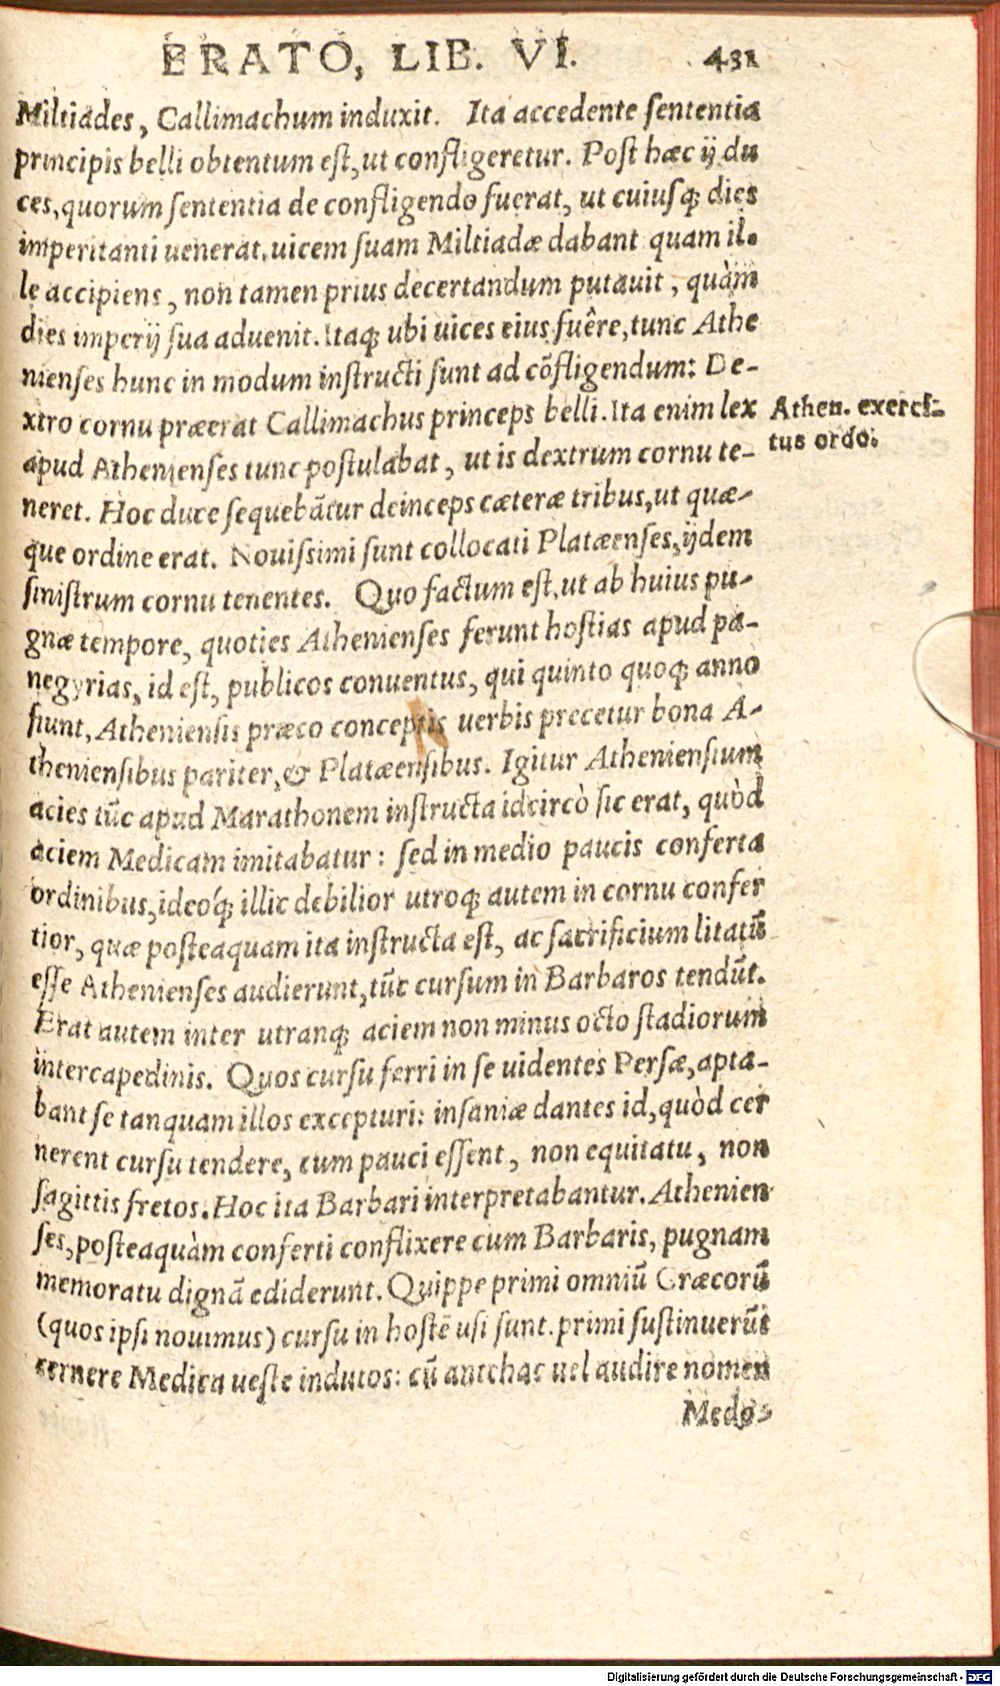 ERATO, LIB. VI. 431
Miltiades, Callimachum induxit. Ita accedente ſententia
principis belli obtentum eſt, ut confligeretur. Poſt hæc ij du
ces, quorum ſententia de confligendo fuerat, ut cuiuſq; dies
imperitanti uenerat, uicem ſuam Miltiadæ dabant quam il-
le accipiens, non tamen prius decertandum putauit, quàm
dies imperij ſua aduenit. Itaq; ubi uices eius fuêre, tunc Athe
nienſes hunc in modum inſtructi ſunt ad cõfligendum: De-
xtro cornu præerat Callimachus princeps belli. Ita enim lex
Athen. exerci-
tus ordo.
apud Athenienſes tunc poſtulabat, ut is dextrum cornu te-
neret. Hoc duce ſequebãtur deinceps cæteræ tribus, ut quæ-
que ordine erat. Nouiſsimi ſunt collocati Platæenſes, ijdem
ſiniſtrum cornu tenentes. Quo factum eſt, ut ab huius pu-
gnæ tempore, quoties Athenienſes ferunt hoſtias apud pa-
negyrias, id eſt, publicos conuentus, qui quinto quoq; anno
fiunt, Athenienſis præco conceptis uerbis precetur bona A-
thenienſibus pariter, & Platæenſibus. Igitur Athenienſium
acies tũc apud Marathonem inſtructa idcircò ſic erat, quòd
aciem Medicam imitabatur: ſed in medio paucis conferta
ordinibus, ideóq; illic debilior utroq; autem in cornu confer
tior, quæ poſteaquam ita inſtructa eſt, ac ſacrificium litatũ
eſſe Athenienſes audierunt, tũc curſum in Barbaros tendũt.
Erat autem inter utranq; aciem non minus octo ſtadiorum
intercapedinis. Quos curſu ferri in ſe uidentes Perſæ, apta-
bant ſe tanquam illos excepturi: inſaniæ dantes id, quòd cer
nerent curſu tendere, cum pauci eſſent, non equitatu, non
ſagittis fretos. Hoc ita Barbari interpretabantur. Athenien
ſes, poſteaquàm conferti conflixere cum Barbaris, pugnam
memoratu dignã ediderunt. Quippe primi omniũ Græcorũ
(quos ipſi nouimus) curſu in hoſtẽ uſi ſunt. primi ſuſtinuerũt
cernere Medica ueſte indutos: cũ antehac uel audire nomen
Medo-
Digitalisierung gefördert durch die Deutsche Forschungsgemeinschaft - DFG